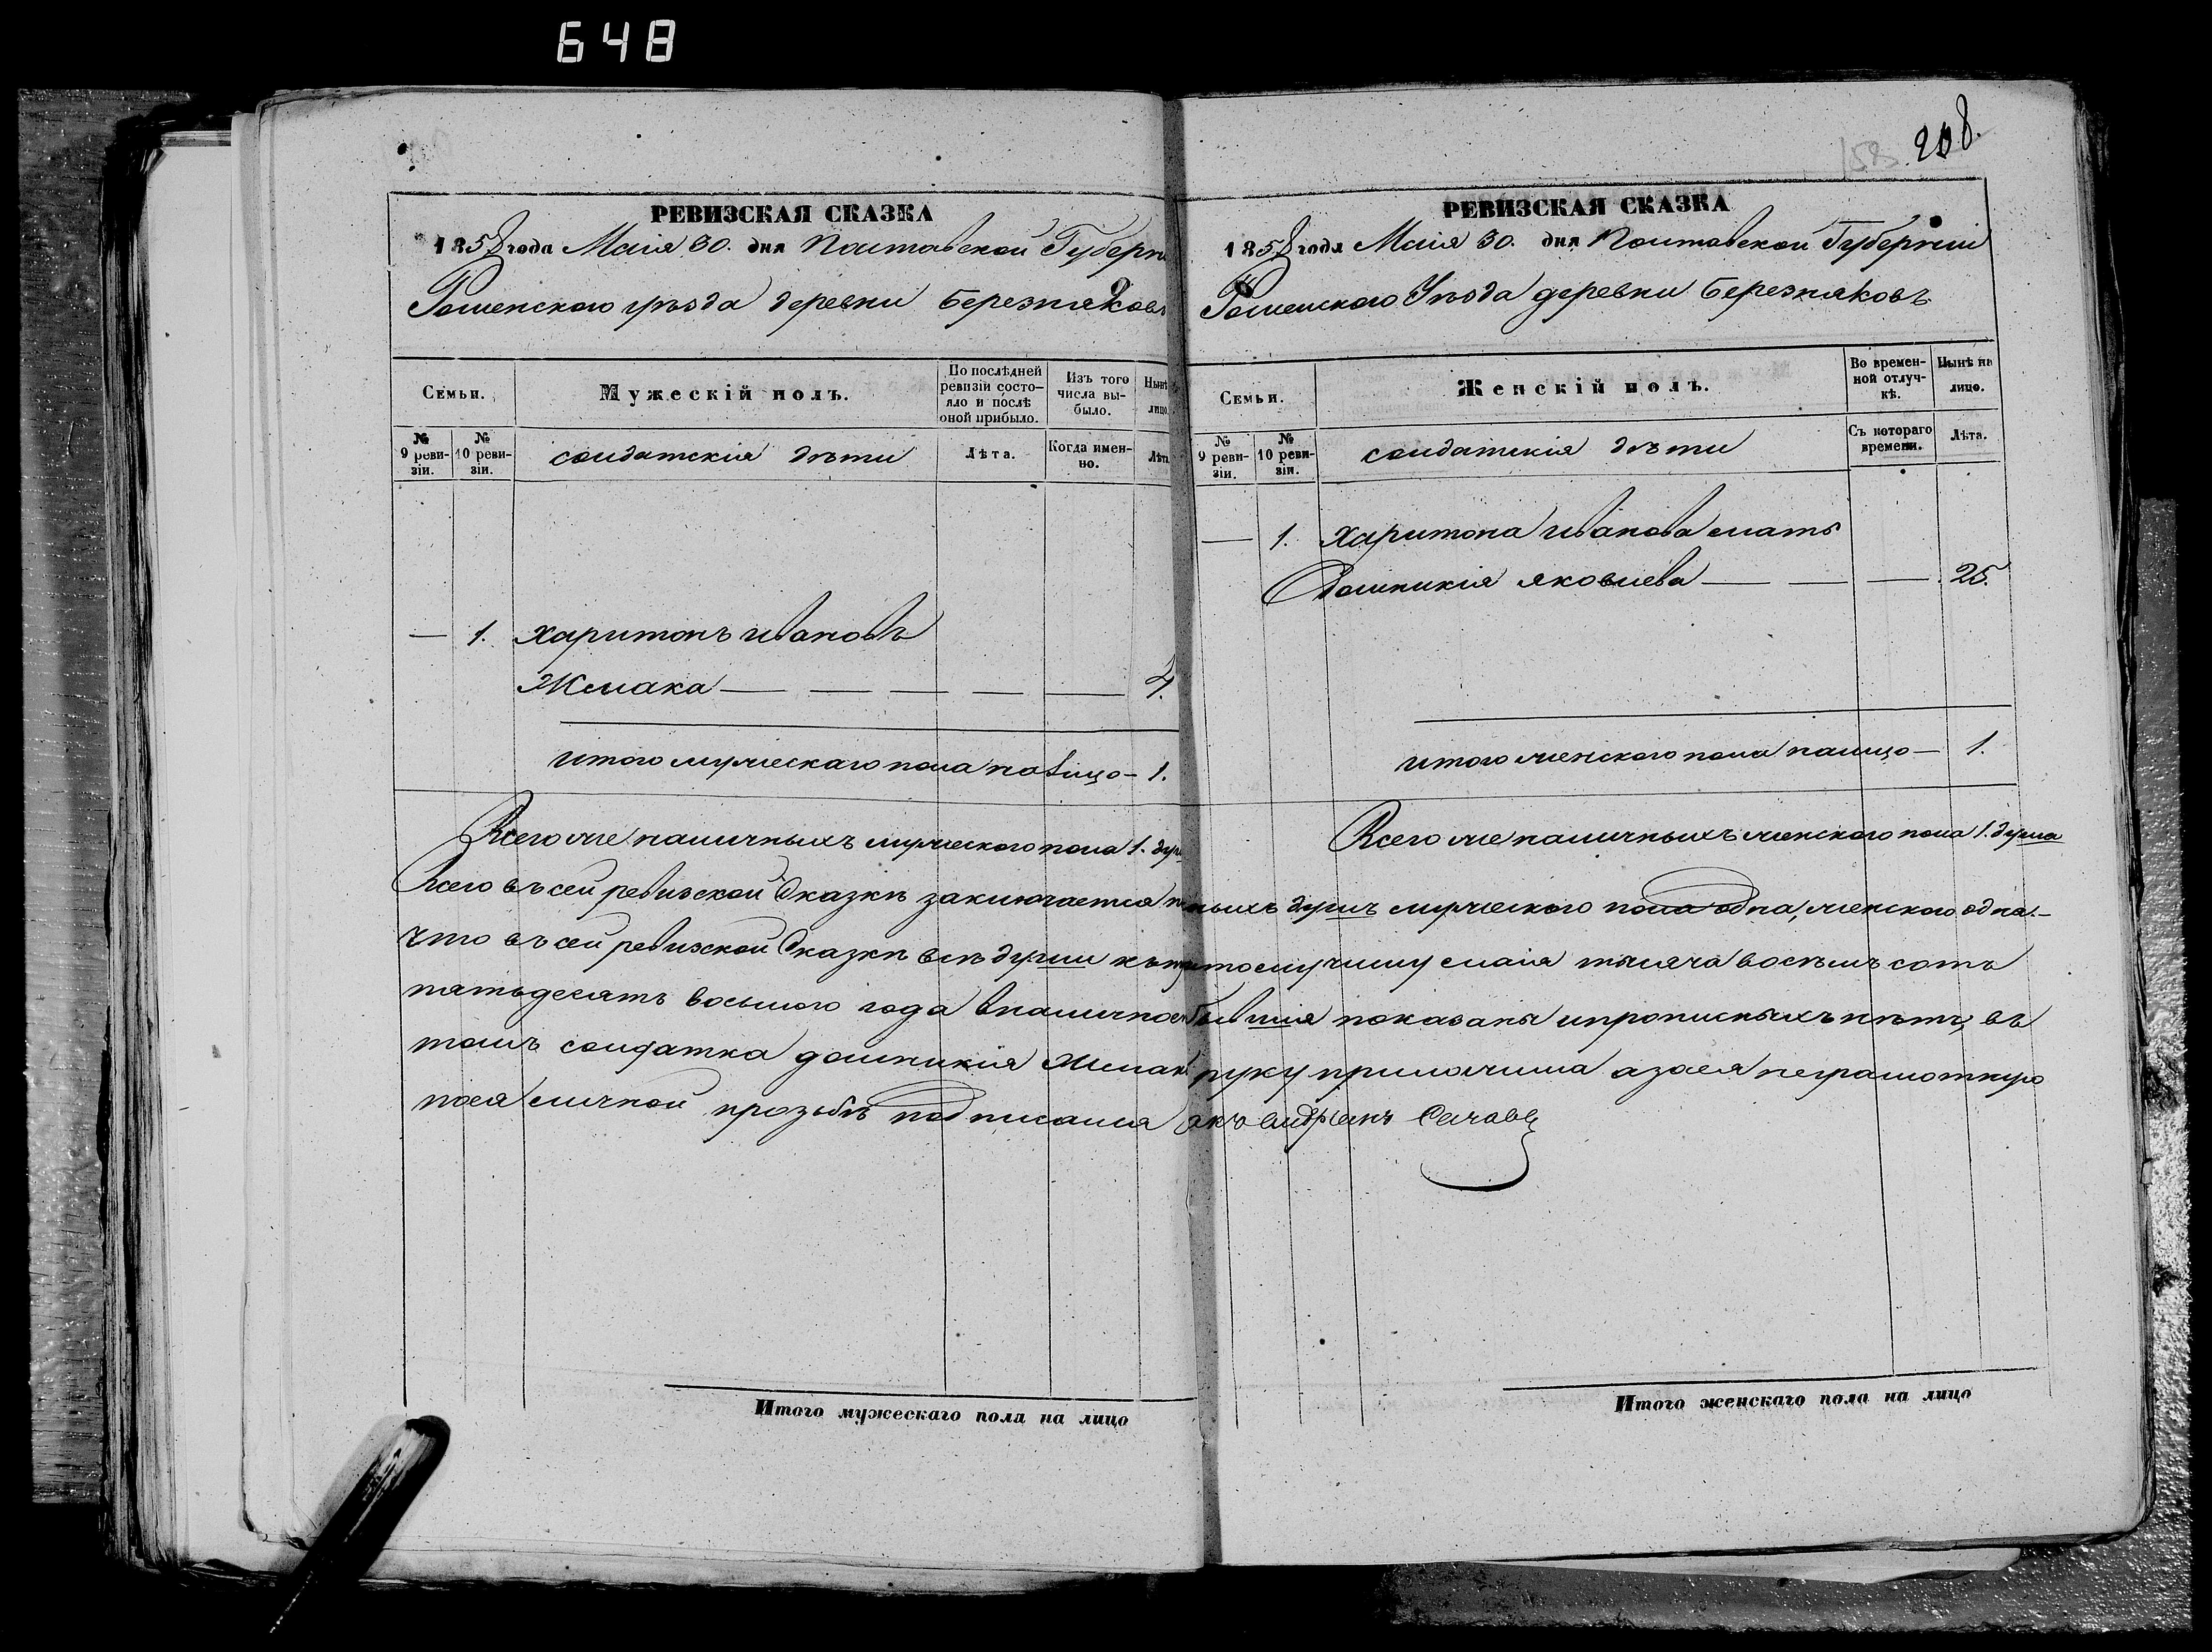 648
158. 208.
РЕВИЗСКАЯ СКАЗКА
1858 года Маія 30. дня Полтавской Губерн
Роменского уѣзда деревни Березняковъ
Семьи.
Мужескій полъ.
По послѣдней ревизіи состо-
яло и послѣ оной прибыло.
Изъ того числа вы-
было.
Нынѣ лицо.
№ 9 реви-
зіи.
№ 10 реви-
зіи.
солдатскія дѣти
Лѣта.
Когда имен-
но.
Лѣта
— 1. Харитонъ Ивановъ
Жмака — — — — — 4.
итого мужескаго пола налицо — 1.
Всего же наличныхъ мужеского пола 1. душ
РЕВИЗСКАЯ СКАЗКА
1858 года Маія 30. дня Полтавской Губерніи
Роменского Уѣзда деревни Березняковъ
Семьи.
Женскій полъ.
Во времен-
ной отлуч-
кѣ.
Нынѣ на лицо.
№ 9 реви-
зіи.
№ 10 реви-
зіи.
солдатскія дѣти
Съ котораго времени.
Лѣта.
— 1. Харитона Иванова мать
Домникія Яковлева — — — 25.
итого женского пола налицо — 1.
Всего же наличныхъ женского пола 1. душа
Всего въ сей ревизской Сказкѣ заключается на ныхъ душъ мужеского пола одна, женского одна. —
что въ сей ревизской Сказкѣ всѣ души къ числу маія тысяча восемъ сотъ
пятьдесятъ восьмого года вналичнос бывшія показаны ипрописныхъ нѣтъ, въ
томъ солдатка домникія Жмак руку приложила азаея неграмотную
поея личной прозьбѣ подписался
Итого мужескаго пола на лицо
Итого женскаго пола на лицо